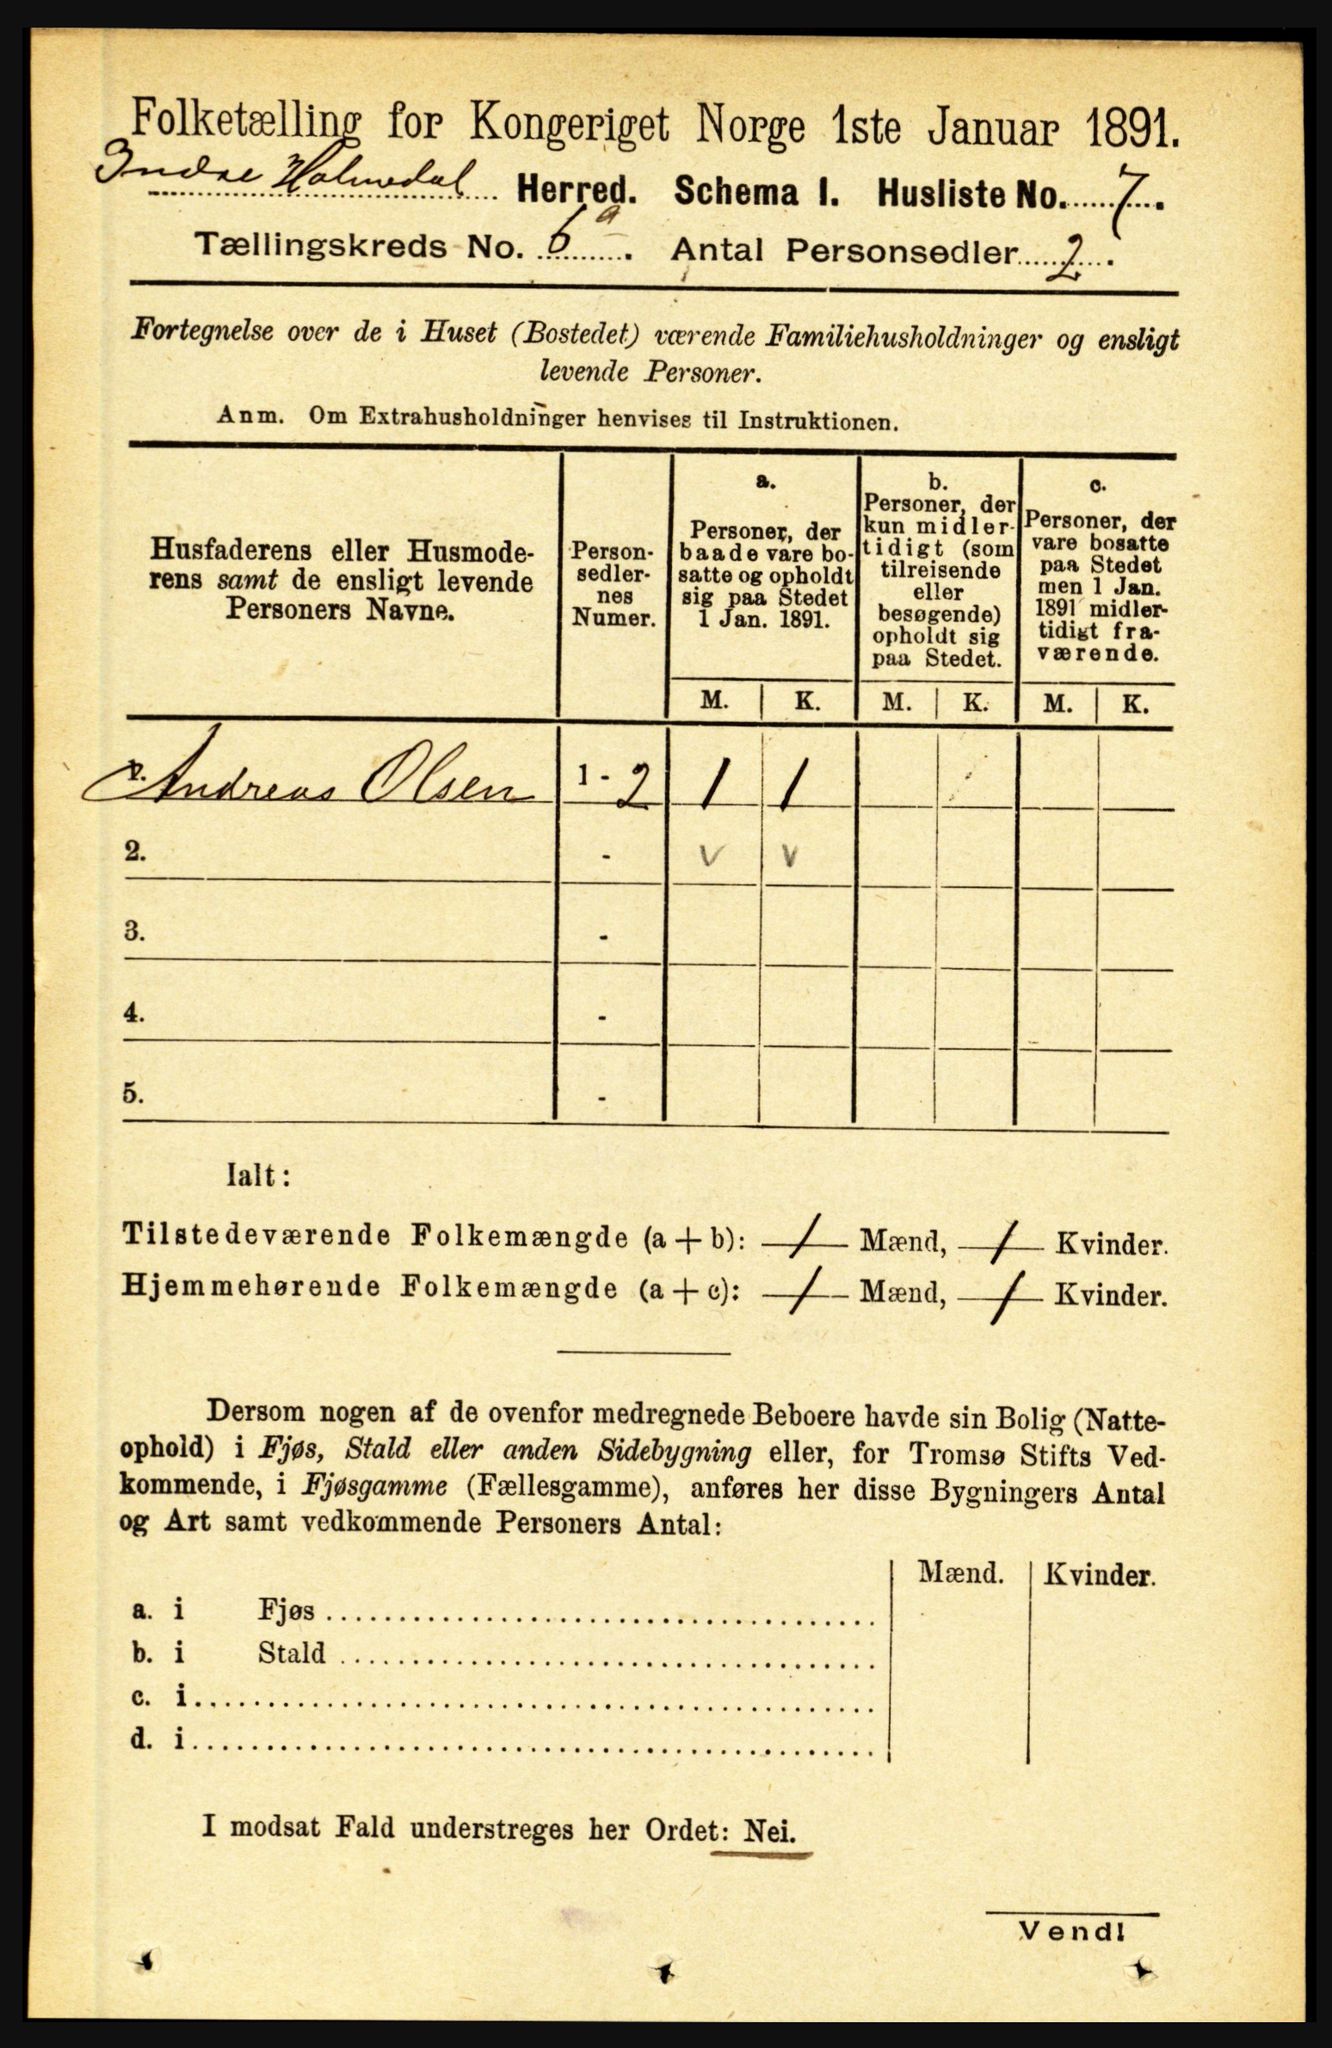 Folketælling for Kongeriget Norge 1ste Januar 1891.
Indre Holmedal Herred. Schema I. Husliste No. 7.
Tællingskreds No. 6a. Antal Personsedler 2.
Fortegnelse over de i Huset (Bostedet) værende Familiehusholdninger og ensligt
levende Personer.
Anm. Om Extrahusholdninger henvises til Instruktionen.
Husfaderens eller Husmode-
rens samt de ensligt levende
Personers Navne.
Person-
sedler-
nes
Numer.
a.
Personer, der
baade vare bo-
satte og opholdt
sig paa Stedet
1 Jan. 1891.
b.
Personer, der
kun midler-
tidigt (som
tilreisende
eller
besøgende)
opholdt sig
paa Stedet.
c.
Personer, der
vare bosatte
paa Stedet
men 1 Jan.
1891 midler-
tidigt fra-
værende.
M. K. M. K. M. K.
1. Andreas Olsen 1 - 2 1 1
2. - v v
3. -
4. -
5. -
Ialt:
Tilstedeværende Folkemængde (a + b): 1 Mænd, 1 Kvinder.
Hjemmehørende Folkemængde (a + c): 1 Mænd, 1 Kvinder.
Dersom nogen af de ovenfor medregnede Beboere havde sin Bolig (Natte-
ophold) i Fjøs, Stald eller anden Sidebygning eller, for Tromsø Stifts Ved-
kommende, i Fjøsgamme (Fællesgamme), anføres her disse Bygningers Antal
og Art samt vedkommende Personers Antal:
Mænd. Kvinder.
a. i Fjøs
b. i Stald
c. i
d. i
I modsat Fald understreges her Ordet: Nei.
Vend!